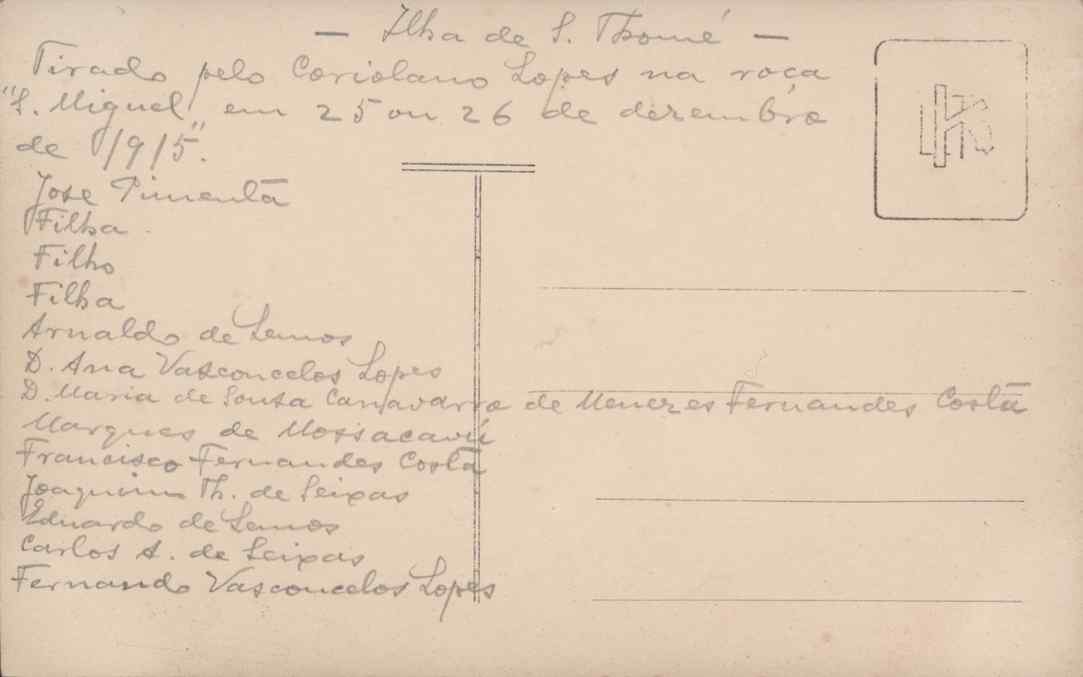 — Ilha de S. Thomé —
Tirado pelo Coriolano Lopes na roça
"S. Miguel" em 25 ou 26 de dezembro
de 1915.
José Pimenta
Filha
Filho
Filha
Arnaldo de Lemos
D. Ana Vasconcelos Lopes
D. Maria de Souza Canavarro de Menezes Fernandes Costa
Marques de Mossacavú
Francisco Fernandes Costa
Joaquim Th. de Seixas
Eduardo de Lemos
Carlos A. de Seixas
Fernando Vasconcelos Lopes